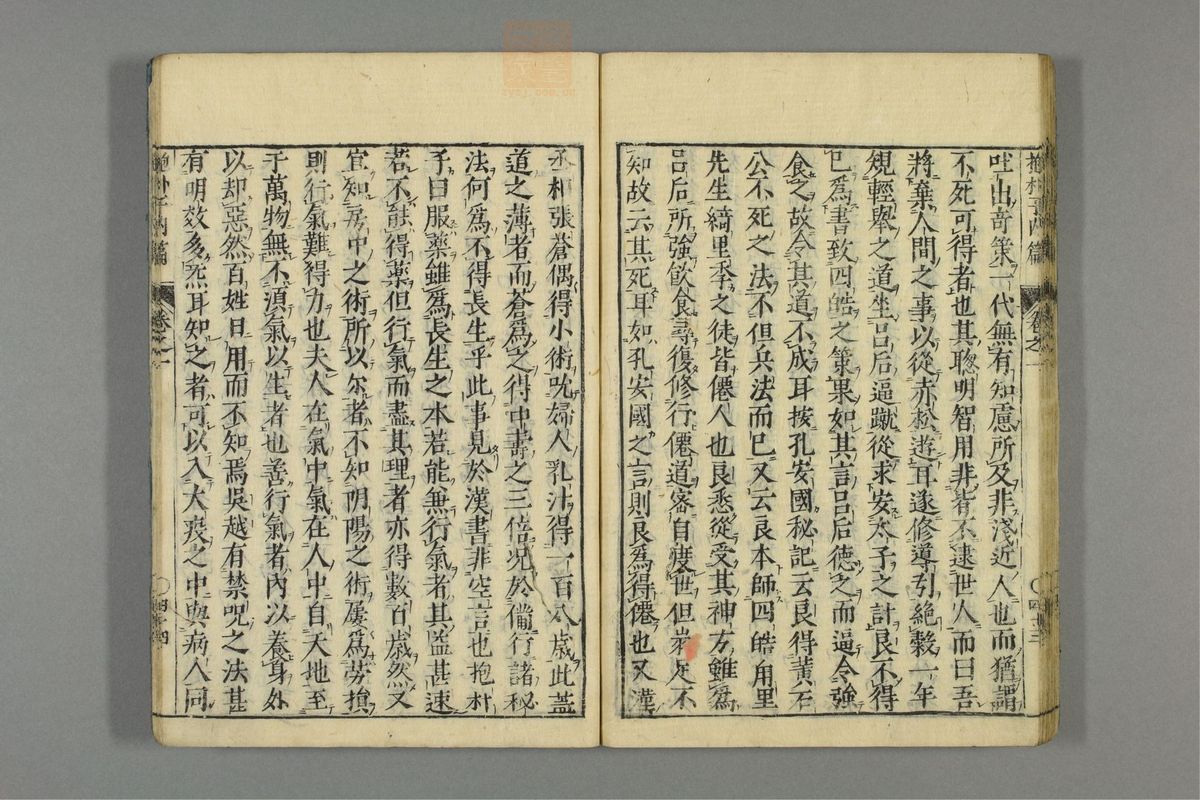 吐出奇策一代無有知慮所及非淺近人也而猶謂
不死可得者也其聰明智用非皆不逮世人而曰吾
將棄人間之事以從赤松遊耳遂修導引絕穀一年
規輕舉之道坐呂后逼蹴從求安太子之計良不得
已為書致四皓之策果如其言呂后德之而逼令強
食之故令其道不成耳按孔安國秘記云良得黃石
公不死之法不但兵法而已又云良本師四皓甪里
先生綺里季之徒皆僊人也良悉從受其神方雖為
呂后所強飲食尋復修行僊道密自度世但世人不
知故云其死耳如孔安國之言則良為得僊也又漢
抱朴子內篇
卷之一
丞相張蒼偶得小術吮婦人乳汁得一百八歲此蓋
道之薄者而蒼為之得中壽之三倍况於備行諸秘
法何為不得長生乎此事見於漢書非空言也抱朴
子曰服藥雖為長生之本若能兼行氣者其益甚速
若不能得藥但行氣而盡其理者亦得數百歲然又
宜知房中之術所以尔者不知陰陽之術屢為勞損
則行氣難得力也夫人在氣中氣在人中自天地至
于萬物無不湏氣以生者也善行氣者內以養身外
以却惡然百姓日用而不知焉吳越有禁呪之法甚
有明效多炁耳知之者可以入大疫之中與病人同
抱朴子內篇
卷之一